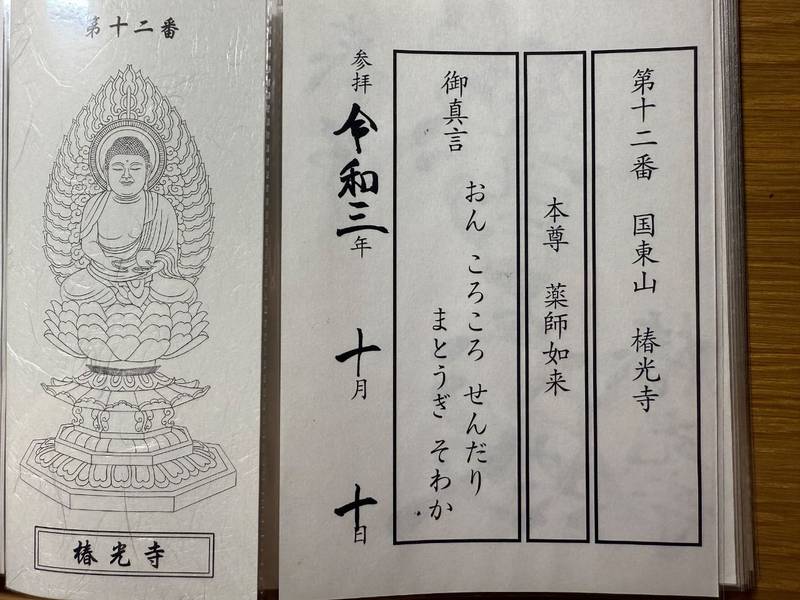 第十二番　国東山　椿光寺
本尊　薬師如来
御真言
おん　ころころ　せんだり
まとうぎ　そわか
参拝　令和三年　十月　十日
第十二番
椿光寺